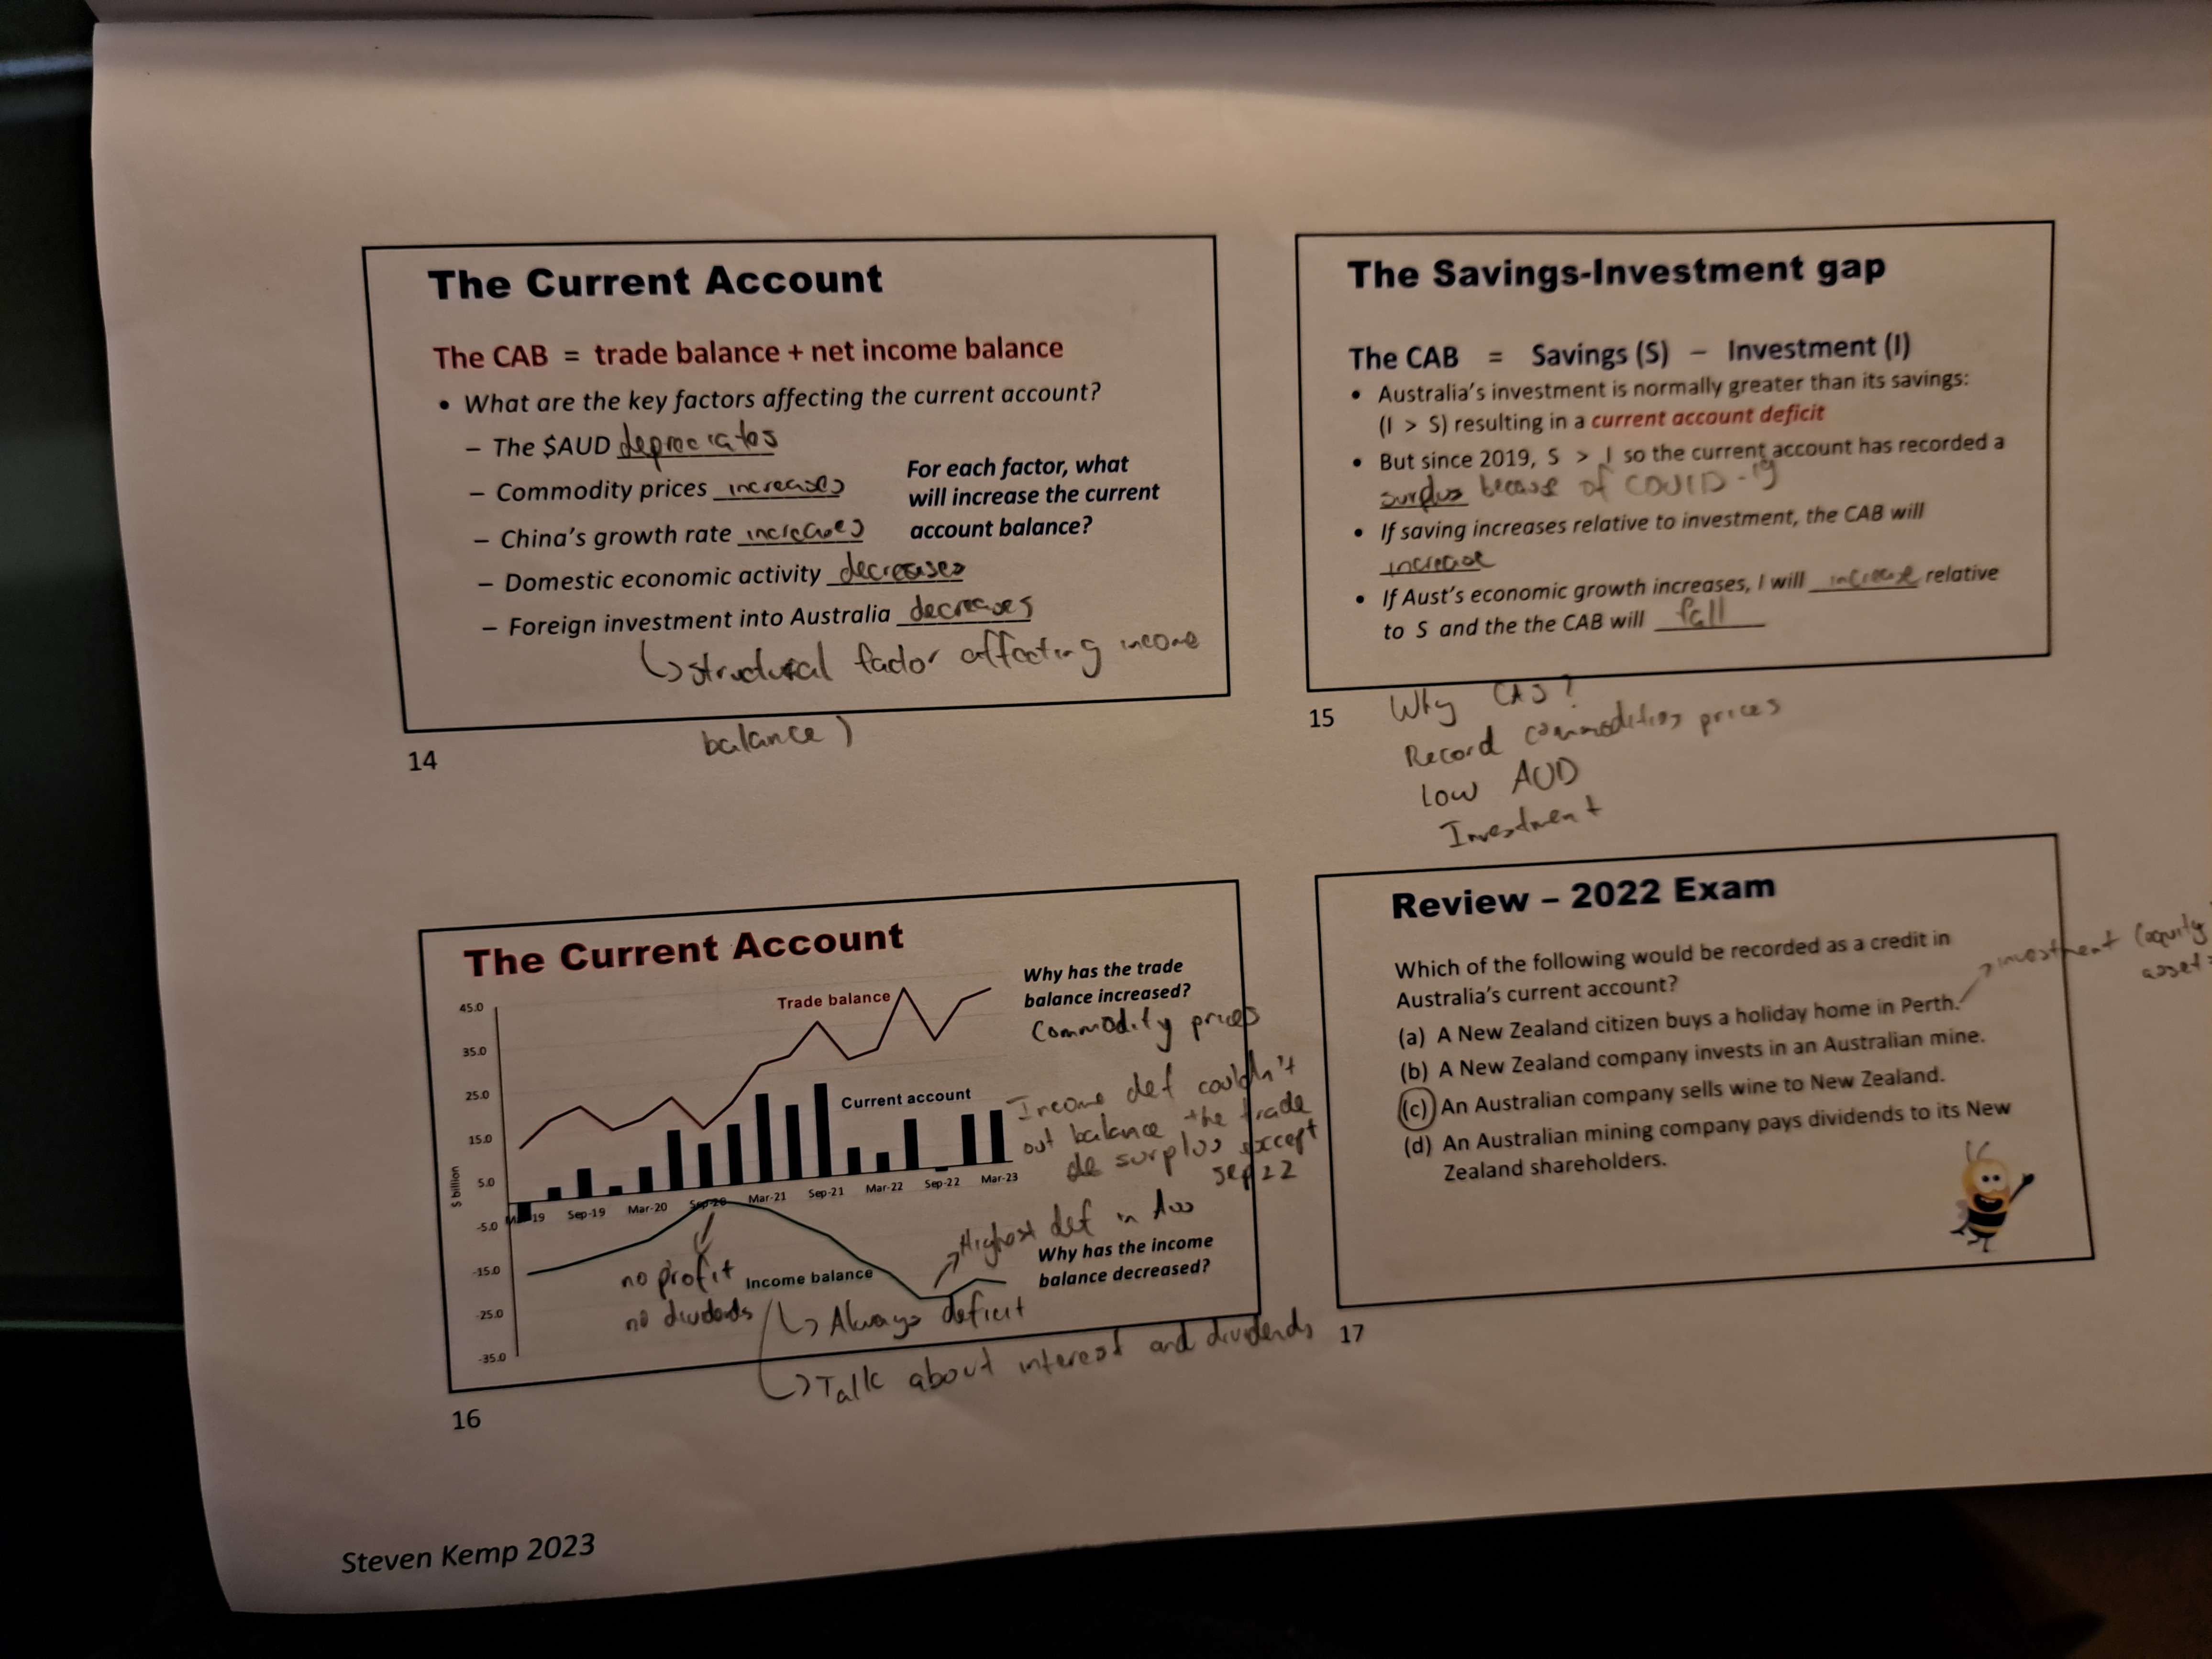 The Current Account
The CAB = trade balance + net income balance
• What are the key factors affecting the current account?
– The $AUD depreciates
– Commodity prices increases
– China's growth rate increases
– Domestic economic activity decreases
– Foreign investment into Australia decreases
For each factor, what
will increase the current
account balance?
↳ structural factor affecting income
balance)
14
The Savings-Investment gap
The CAB = Savings (S) – Investment (I)
• Australia's investment is normally greater than its savings:
(I > S) resulting in a current account deficit
• But since 2019, S > I so the current account has recorded a
surplus because of COVID-19
• If saving increases relative to investment, the CAB will
increase
• If Aust's economic growth increases, I will increase relative
to S and the the CAB will fall
15
Why CAS?
Record commodities prices
Low AUD
Investment
The Current Account
45.0
35.0
25.0
15.0
5.0
-5.0
-15.0
-25.0
-35.0
$ billion
Trade balance
Current account
Income balance
Sep-19
Mar-20
Sep-20
Mar-21
Sep-21
Mar-22
Sep-22
Mar-23
Why has the trade
balance increased?
Commodity prices
Income def couldn't
out balance the trade
surplus except
Sep 22
Highest def in Aus
Why has the income
balance decreased?
no profit
no dividends
↳ Always deficit
↳ Talk about interest and dividends
16
Review – 2022 Exam
Which of the following would be recorded as a credit in
Australia's current account?
(a) A New Zealand citizen buys a holiday home in Perth.
investment (equity
asset
(b) A New Zealand company invests in an Australian mine.
(c) An Australian company sells wine to New Zealand.
(d) An Australian mining company pays dividends to its New
Zealand shareholders.
17
Steven Kemp 2023